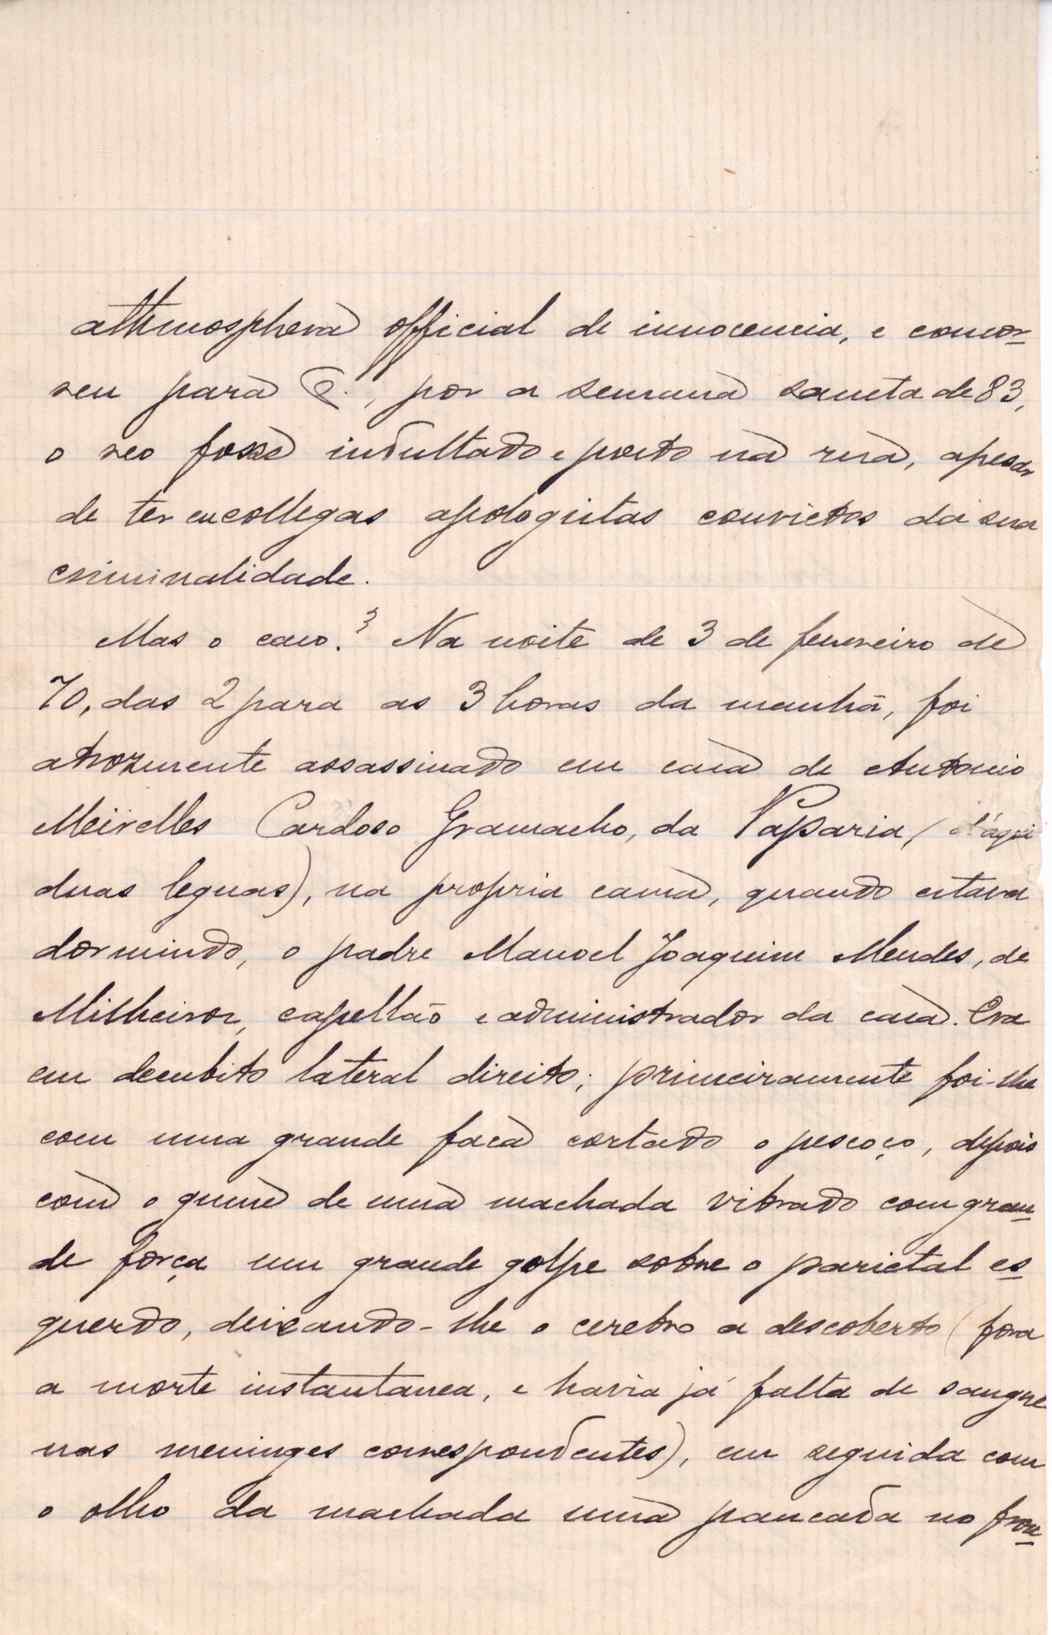 athmosphera official de innocencia, e concor-
reu para Q., por a semana sancta de 83,
o reo fosse indultado e posto na rua, apesar
de ter eu collegas apologistas convictos da sua
criminalidade.
Mas o caso? Na noite de 3 de fevereiro de
70, das 2 para as 3 horas da manhã, foi
atrozmente assassinado em casa de Antonio
Meirelles Cardoso Gramacho, da Vaparia, (d'aqui
duas leguas), na propria cama, quando estava
dormindo, o padre Manoel Joaquim Mendes, de
Milheiros, capellão e administrador da casa. Era
em decubito lateral direito; primeiramente foi-lhe
com uma grande faca cortado o pescoço, depois
com o gume de uma machada vibrado com gran-
de força um grande golpe sobre o parietal es-
querdo, deixando-lhe o cerebro a descoberto (fora
a morte instantanea, e havia já falta de sangue
nas meninges correspondentes), em seguida com
o olho da machada uma pancada no fron-